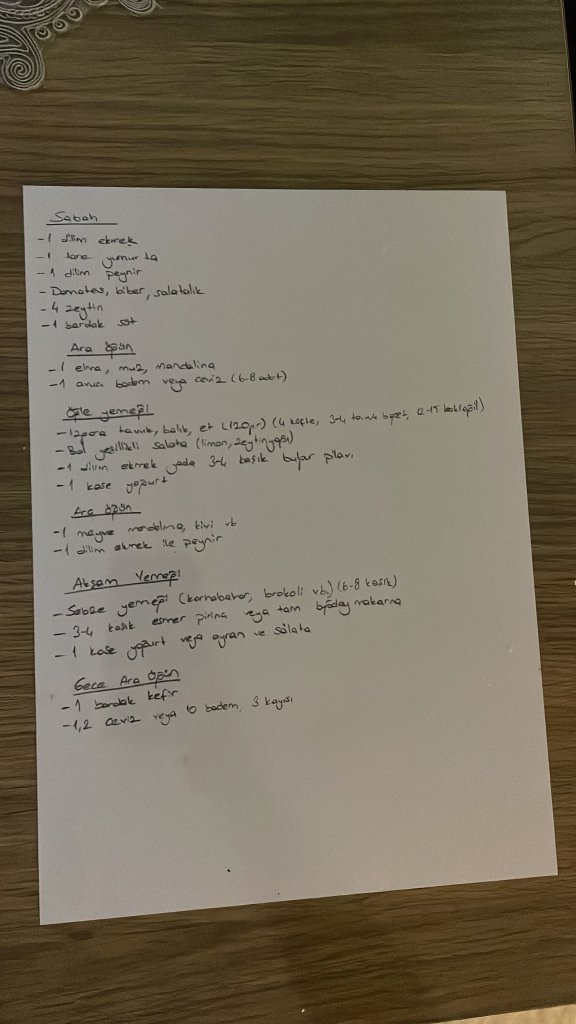 Sabah
-1 dilim ekmek
-1 tane yumurta
-1 dilim peynir
-Domates, biber, salatalık
-4 zeytin
-1 bardak süt
Ara Öğün
-1 elma, muz, mandalina
-1 avuç badem veya ceviz (6-8 adet)
Öğle yemeği
-Izgara tavuk, balık, et (120gr) (4 köfte, 3-4 tavuk baget, 12-15
-Bol yeşillikli salata (limon, zeytinyağı)
-1 dilim ekmek yada 3-4 kaşık bulgur pilavı
-1 kase yoğurt
Ara Öğün
-1 meyve mandalina, kivi vb
-1 dilim ekmek ile peynir
Akşam Yemeği
-Sebze yemeği (karnabahar, brokoli vb.) (6-8 kaşık)
-3-4 kaşık esmer pirinç veya tam buğday makarna
-1 kase yoğurt veya ayran ve salata
Gece Ara Öğün
-1 bardak kefir
-1,2 ceviz veya 10 badem, 3 kayısı